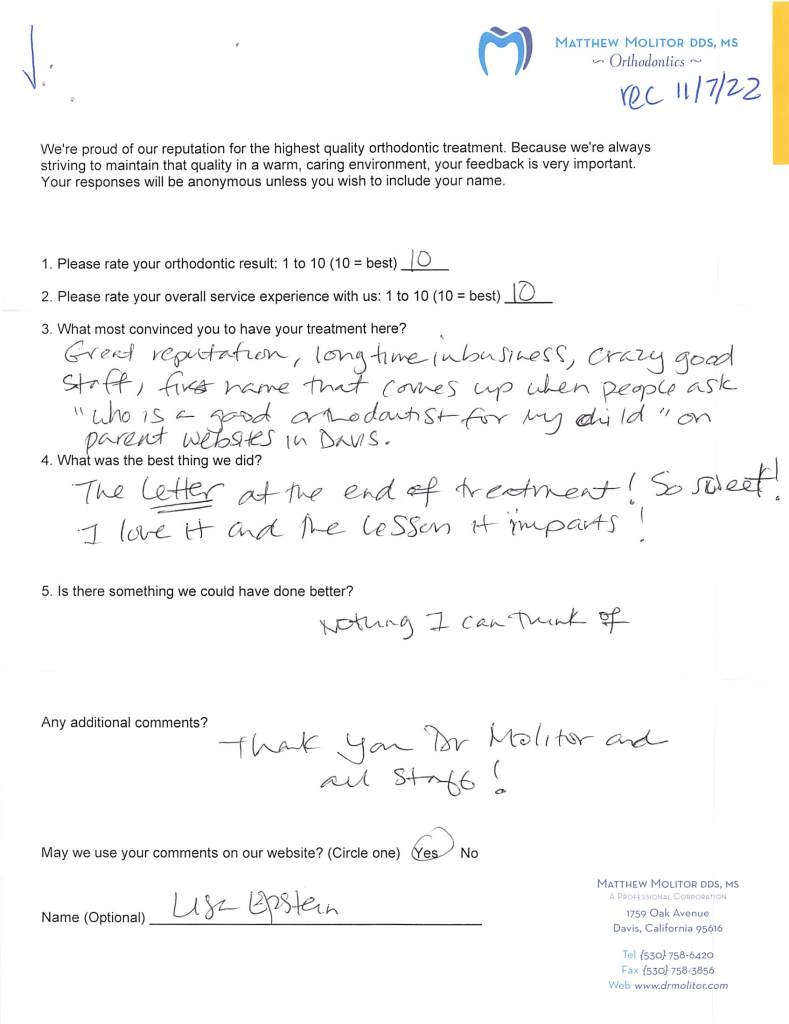 MATTHEW MOLITOR DDS, MS
~ Orthodontics ~
rec 11/7/22
We're proud of our reputation for the highest quality orthodontic treatment. Because we're always
striving to maintain that quality in a warm, caring environment, your feedback is very important.
Your responses will be anonymous unless you wish to include your name.
1. Please rate your orthodontic result: 1 to 10 (10 = best) 10
2. Please rate your overall service experience with us: 1 to 10 (10 = best) 10
3. What most convinced you to have your treatment here?
Great reputation, long time in business, crazy good
staff, first name that comes up when people ask
"who is a good orthodontist for my child" on
parent websites in Davis.
4. What was the best thing we did?
The letter at the end of treatment! So sweet!
I love it and the lesson it imparts!
5. Is there something we could have done better?
Nothing I can think of
Any additional comments?
Thank you Dr Molitor and
all staff!
May we use your comments on our website? (Circle one) Yes No
Name (Optional) Lisa Epstein
MATTHEW MOLITOR DDS, MS
A PROFESSIONAL CORPORATION
1759 Oak Avenue
Davis, California 95616
Tel {530} 758-6420
Fax {530} 758-3856
Web www.drmolitor.com